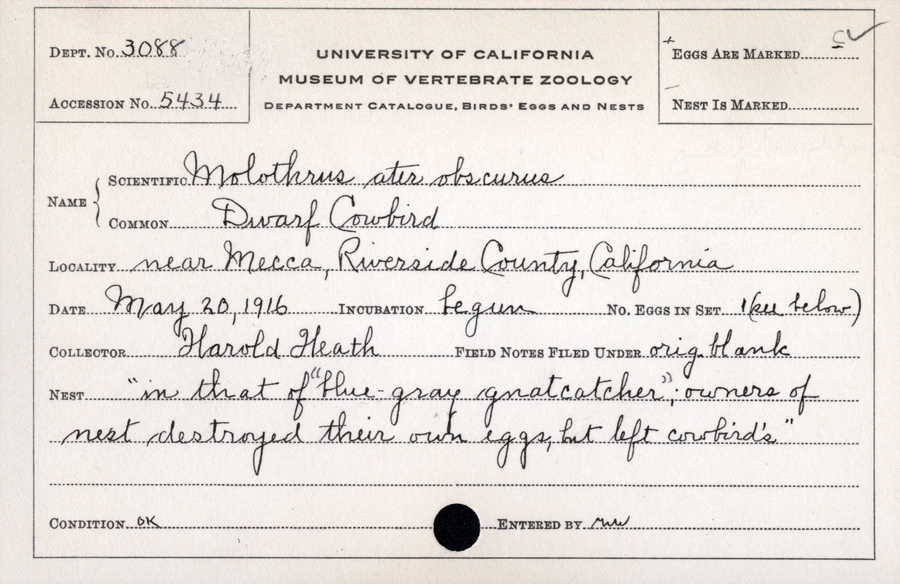 DEPT. No. 3088
ACCESSION No. 5434
UNIVERSITY OF CALIFORNIA
MUSEUM OF VERTEBRATE ZOOLOGY
DEPARTMENT CATALOGUE, BIRDS' EGGS AND NESTS
+
EGGS ARE MARKED
—
NEST IS MARKED
NAME
SCIENTIFIC Molothrus ater obscurus
COMMON Dwarf Cowbird
LOCALITY near Mecca, Riverside County, California
DATE May 20, 1916 INCUBATION begun NO. EGGS IN SET 1 (see below)
COLLECTOR Harold Heath FIELD NOTES FILED UNDER orig. blank
NEST "in that of "blue-gray gnatcatcher"; owners of
nest destroyed their own eggs, but left cowbird's"
CONDITION OK ENTERED BY